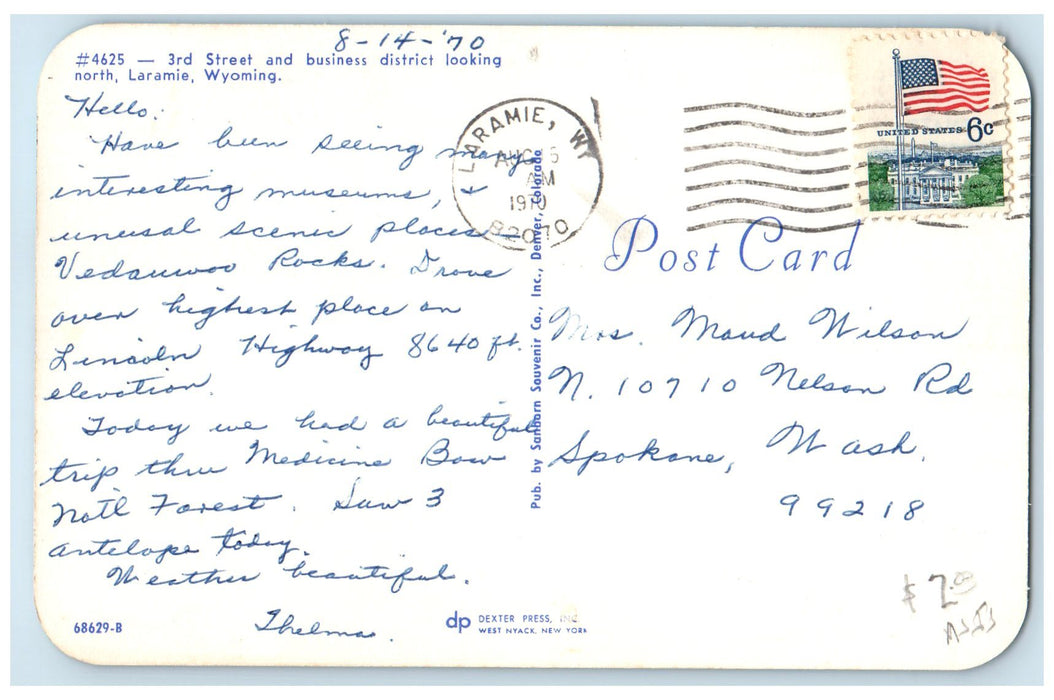 8-14-'70
#4625 — 3rd Street and business district looking
north, Laramie, Wyoming.
Hello:
Have been seeing many
interesting museums, &
unusal scenic places—
Vedauwoo Rocks. Drove
over highest place on
Lincoln Highway 8640 ft.
elevation.
Today we had a beautiful
trip thru Medicine Bow
Nat'l Forest. Saw 3
antelope today.
Weather beautiful.
Thelma.
68629-B
dp DEXTER PRESS, INC.
WEST NYACK, NEW YORK
Pub. by Sanborn Souvenir Co., Inc., Denver, Colorado
LARAMIE, WY
AUG 15
AM
1970
82070
UNITED STATES 6c
Post Card
Mrs. Maud Wilson
N. 10710 Nelson Rd
Spokane, Wash.
99218
$ 2.00